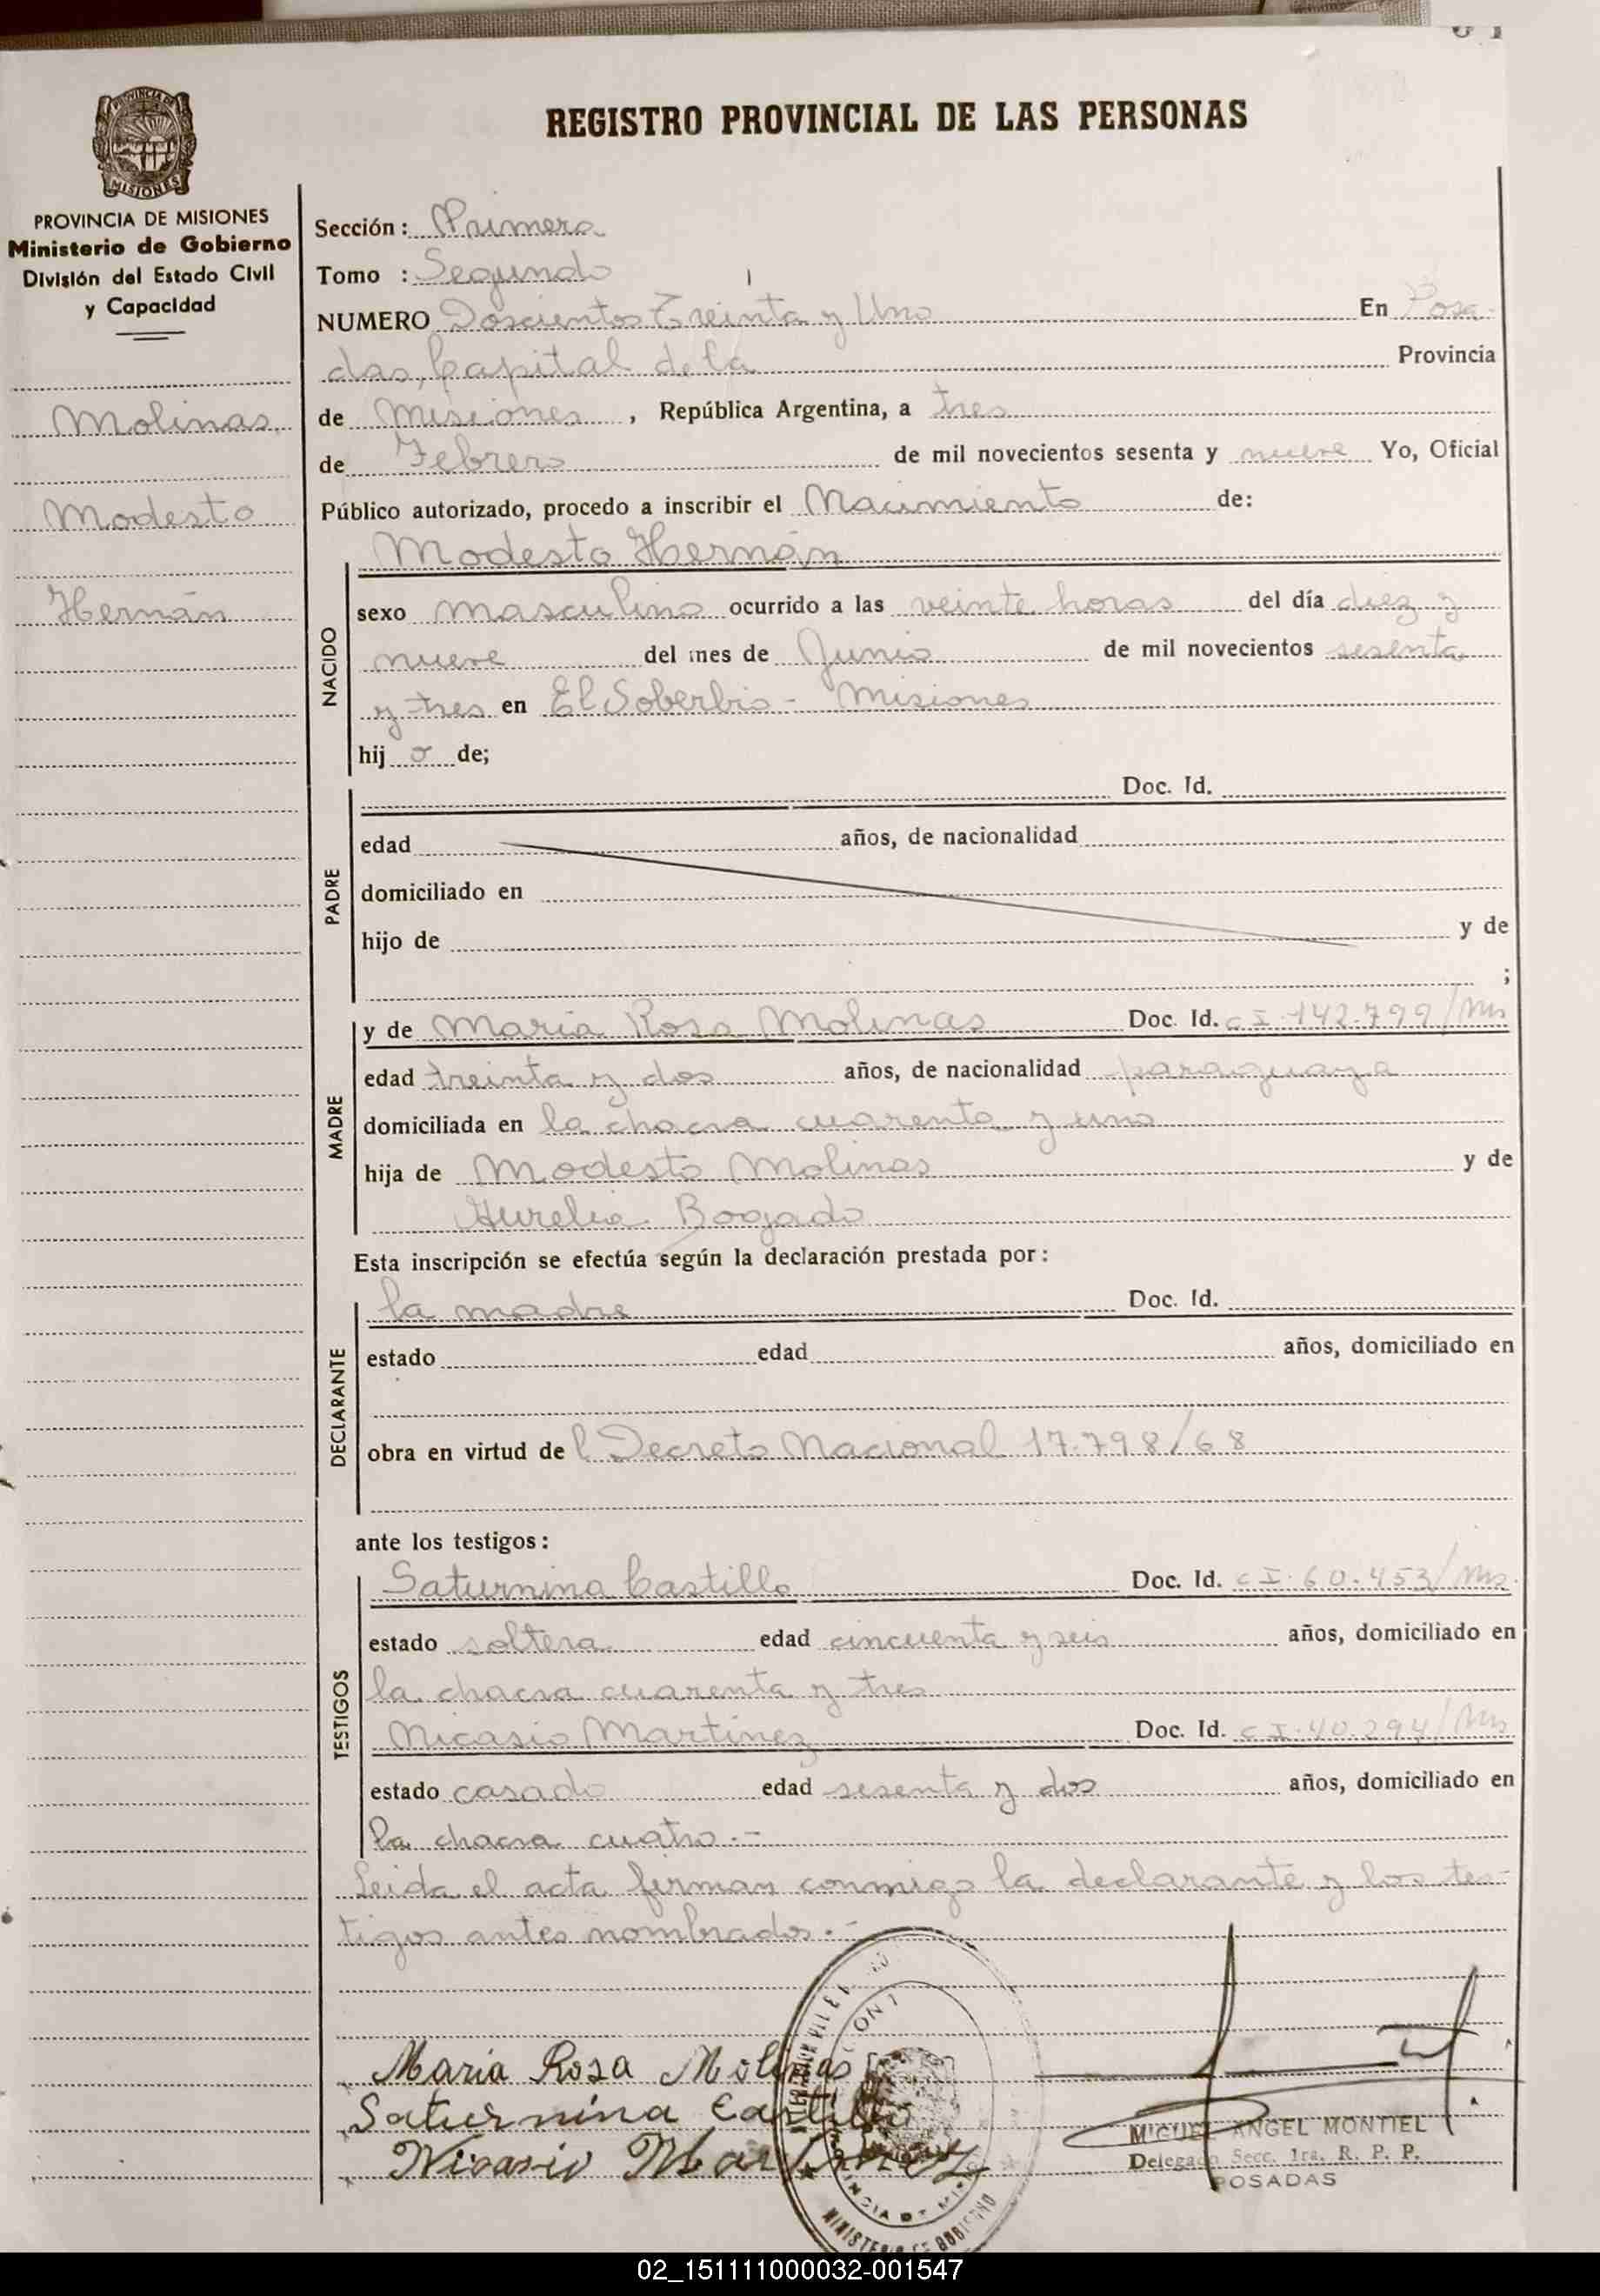 REGISTRO PROVINCIAL DE LAS PERSONAS
PROVINCIA DE
MISIONES
PROVINCIA DE MISIONES
Ministerio de Gobierno
División del Estado Civil
y Capacidad
Molinas
Modesto
Hernán
Sección: Primera
Tomo : Segundo
NUMERO Doscientos Treinta y Uno En Posa-
das, Capital de la Provincia
de Misiones, República Argentina, a tres
de Febrero de mil novecientos sesenta y nueve Yo, Oficial
Público autorizado, procedo a inscribir el Nacimiento de:
Modesto Hernán
NACIDO
sexo masculino ocurrido a las veinte horas del día diez y
nueve del mes de Junio de mil novecientos sesenta
y tres en El Soberbio - Misiones
hij o de;
PADRE
Doc. Id.
edad años, de nacionalidad
domiciliado en
hijo de y de
;
MADRE
y de María Rosa Molinas Doc. Id. C I. 142.799/Mns
edad treinta y dos años, de nacionalidad paraguaya
domiciliada en la chacra cuarenta y uno
hija de Modesto Molinas y de
Aurelia Bogado
Esta inscripción se efectúa según la declaración prestada por:
DECLARANTE
la madre Doc. Id.
estado edad años, domiciliado en
obra en virtud de l Decreto Nacional 17.798/68
ante los testigos:
TESTIGOS
Saturnina Castillo Doc. Id. C I. 60.453/Mns.
estado soltera edad cincuenta y seis años, domiciliado en
la chacra cuarenta y tres
Nicasio Martinez Doc. Id. C I. 40.294/Mns
estado casado edad sesenta y dos años, domiciliado en
la chacra cuatro.-
Leida el acta firman conmigo la declarante y los tes-
tigos antes nombrados.-
Maria Rosa Molinas
Saturnina Castillo
Nicasio Martinez
MIGUEL ANGEL MONTIEL
Delegado Secc. 1ra. R. P. P.
POSADAS
MINISTERIO DE GOBIERNO
02_151111000032-001547